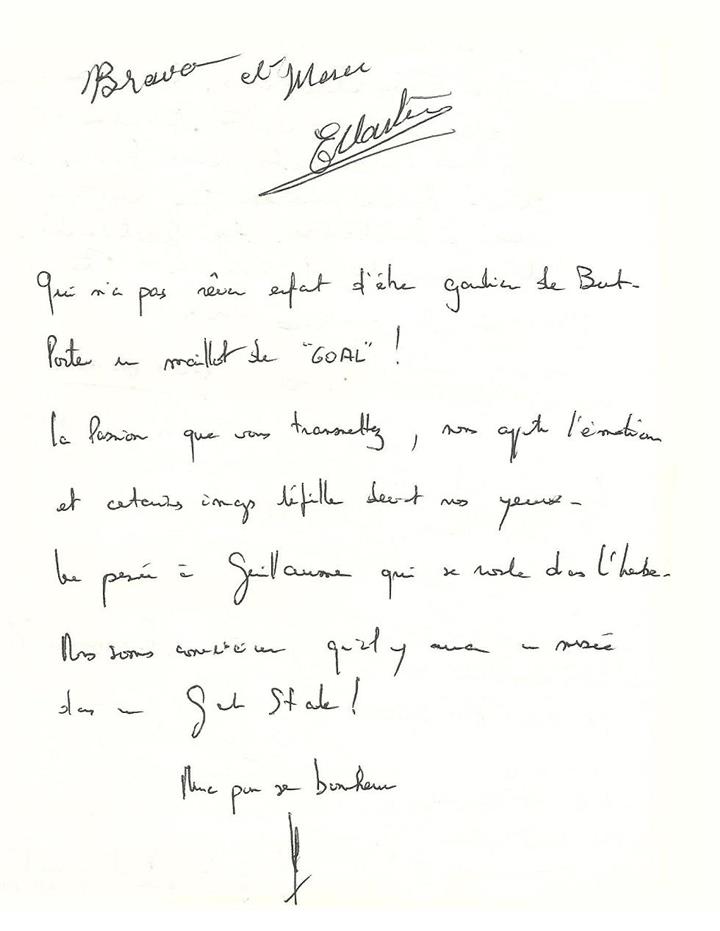 Bravo et Merci
EMartin
Qui n'a pas rêver enfant d'être gardien de But.
Porter un maillot de "GOAL" !
la Passion que vous transmettez, nous apporte l'émotion
et certaines images défille devant nos yeux.
Une pensée à Guillaume qui se roule dans l'herbe.
Nous sommes convaincu qu'il y aura un musée
dans un Stade !
Merci pour se bonheur